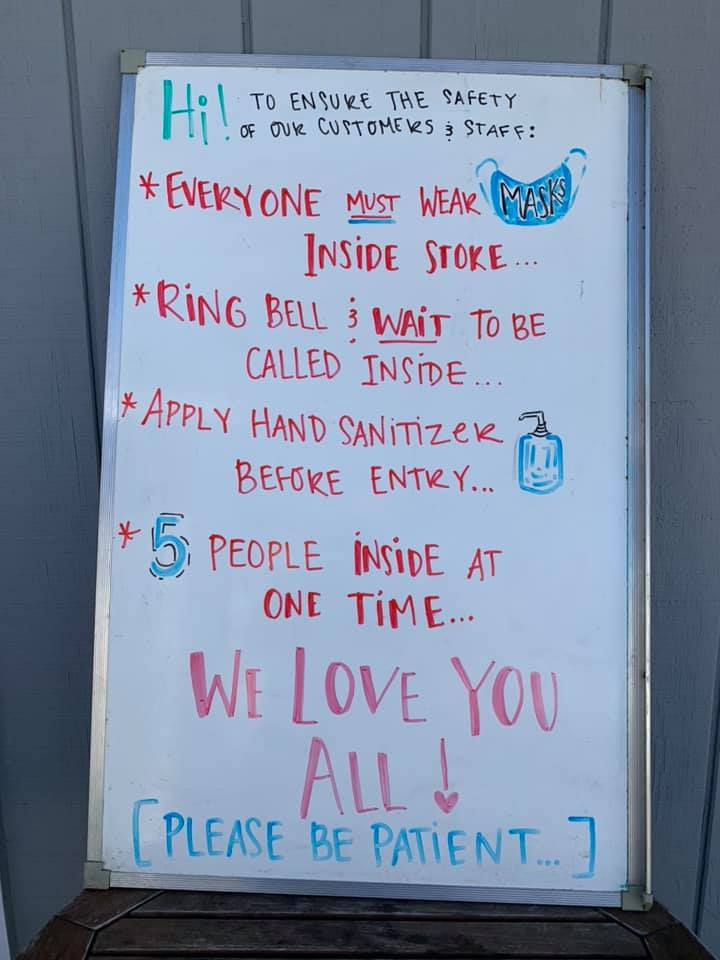 Hi! TO ENSURE THE SAFETY
OF OUR CUSTOMERS & STAFF:
* EVERYONE MUST WEAR MASKS
INSIDE STORE...
* RING BELL & WAIT TO BE
CALLED INSIDE...
* APPLY HAND SANITIZER
BEFORE ENTRY...
* 5 PEOPLE INSIDE AT
ONE TIME...
WE LOVE YOU
ALL!
[PLEASE BE PATIENT...]